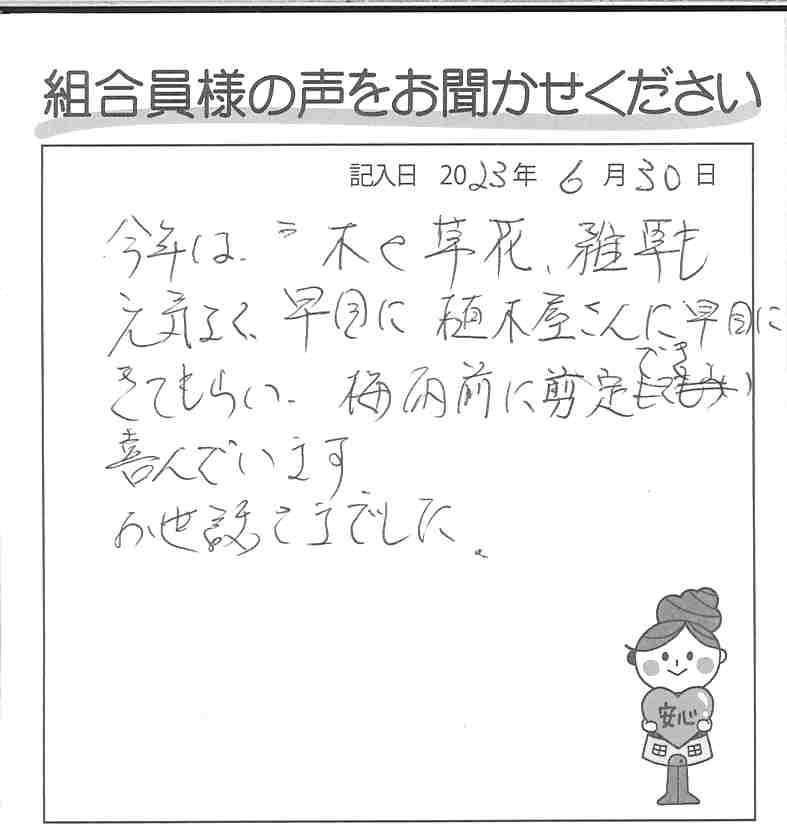 組合員様の声をお聞かせください
記入日 2023年 6月30日
今年は、木や草花、雑草も
元気よく、早目に植木屋さんに早目に
きてもらい、梅雨前に剪定でき
喜んでいます
お世話さまでした。
安心